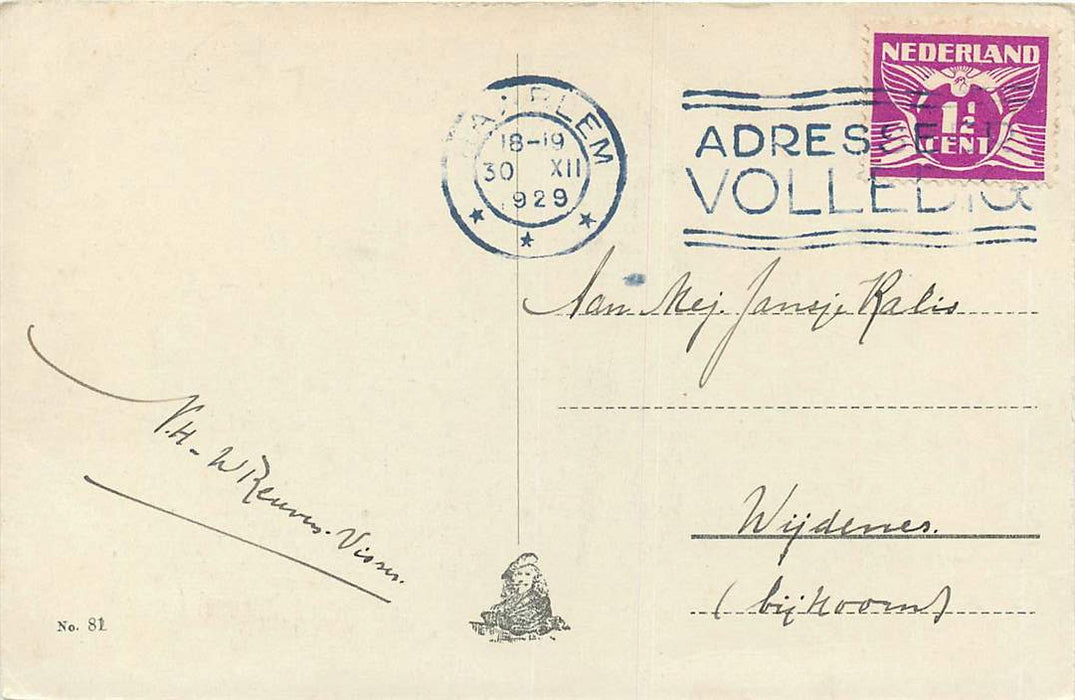 NEDERLAND
1½
CENT
HAARLEM
18-19
30 XII
1929
ADRESSEERT
VOLLEDIG
Aan Mej. Jansje Kalis
V.H - W Reuvers-Visser.
Wijdenes.
(bij Hoorn)
No. 81